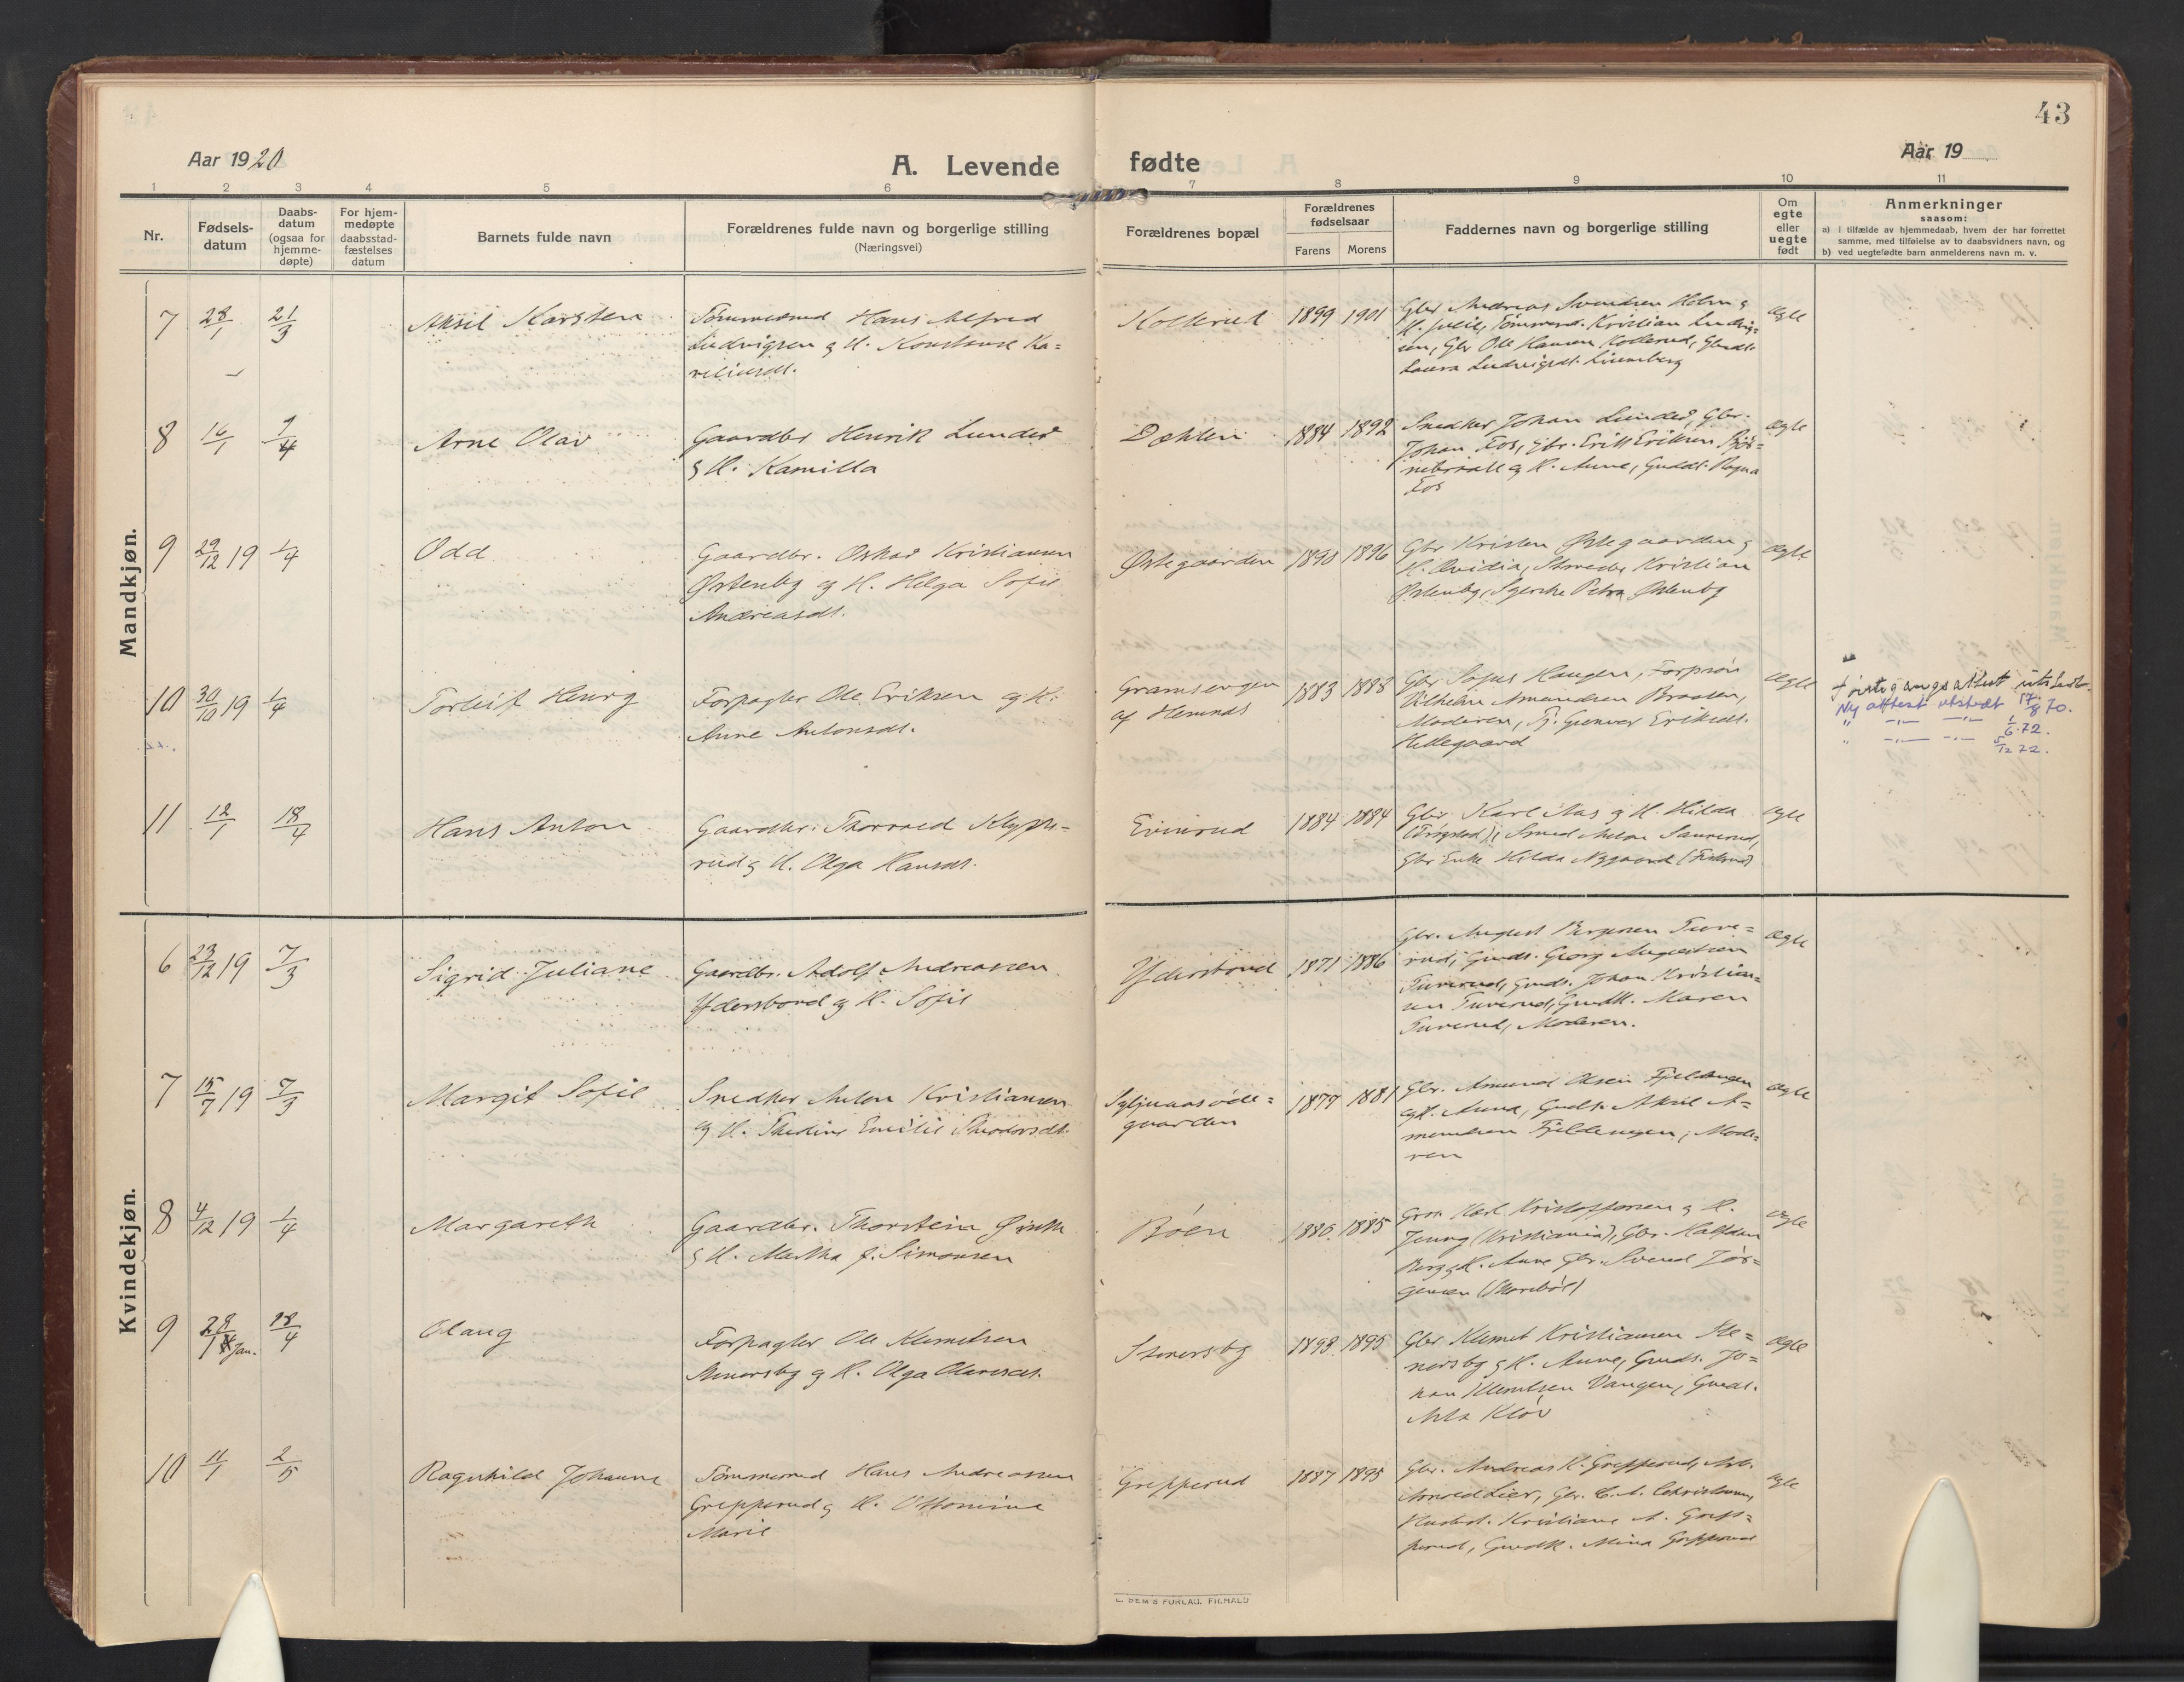 43
Aar 1920
A. Levende fødte
Aar 19
1 2 3 4 5 6 7 8 9 10 11
Nr.
Fødsels-
datum
Daabs-
datum
(ogsaa for
hjemme-
døpte)
For hjem-
medøpte
daabsstad-
fæstelses
datum
Barnets fulde navn
Forældrenes fulde navn og borgerlige stilling
(Næringsvei)
Forældrenes bopæl
Forældrenes
fødselsaar
Farens Morens
Faddernes navn og borgerlige stilling
Om
egte
eller
uegte
født
Anmerkninger
saasom:
a) i tilfælde av hjemmedaab, hvem der har forrettet
samme, med tilføielse av to daabsvidners navn, og
b) ved uegtefødte barn anmelderens navn m. v.
Mandkjøn.
7 28/1 21/3 Aksel Karsten
Tømmermd Hans Alfred
Ludvigsen & H. Konstanse Ka=
Kollerud 1899 1901
Gbr Andreas Svendsen Holm &
Kristian Ludvig=
sen, Gbr Ole Hansen Kollerud,
Laura Ludvigsdt.
Ægte
8 16/1 9/4 Arne Olav
Gaardbr Henrik Lunder
& H. Kamilla
Dæhlen 1884 1892
Snedker Johan Lunder, Gbr.
Johan Fos, Gbr. Erik Eriksen
og H. Anne,
Fos
Ægte
9 29/12 19 1/4 Odd
Gaardbr. Oskar Kristiansen
Østenby og H. Helga Sofie
Andreasdt.
Østegaarden 1890 1896
Gbr Kristen Østegaarden &
Kristian
Østenby, Petra Østenby
Ægte
10 30/10 19 1/4 Torleif Henry
Forpagter Ole Eriksen og H.
Anne Antonsdt.
Gramsengen
af Hemnes
1883 1888
Gbr Sofus Haugen,
Vilhelm Amundsen Braaten,
Moderen, Eriksdt.
Hellegaard
Ægte
Ny attest utstedt 17/8 70.
" —"— —"— 1/6.72.
" —"— —"— 5/12 72.
11 12/1 18/4 Hans Anton
Gaardbr. Thorvald Klypp=
rud & H. Olga Hansdt.
Evinrud 1884 1884
Gbr. Karl Aas og H. Hilda
(Trøgstad), Smed Anton
Gbr Enke Hilda Nygaard
Ægte
Kvindekjøn.
6 23/12 19 7/3 Sigrid Juliane
Gaardbr. Adolf Andreassen
Ydersbond og H. Sofie
Ydersbond 1871 1886
Gbr. August
Georg Augustsen
Johan Kristian=
sen Tuverud, Maren
Tuverud, Moderen.
Ægte
7 15/7 19 7/3 Margit Sofie
Snedker Anton Kristiansen
& H. Thedine Emilie Theodorsdt.
gaarden
1877 1881
Gbr. Amund Olsen Fjeldengen
og H. Anna, Aksel A=
mundsen Fjeldengen, Mode=
ren
Ægte
8 4/12 19 1/4 Margareth
Gaardbr. Thorstein
& H. Martha f. Simonsen
Bøen 1880. 1885
Karl Kristoffersen & H.
Jenny (Kristiania), Gbr. Halfdan
Berg & H. Anne Gbr. Svend Jør=
gensen
Ægte
9 28/1 Jan. 18/4 Olaug
Forpagter Ole Klemetsen
Stenersby og H. Olga Olavesdt.
Stenersby 1893. 1895
Gbr Klemet Kristiansen Ste=
nersby & H. Anne, Jo=
han Klemetsen Vangen,
Asta Kløv
Ægte
10 11/1 2/5 Ragnhild Johanne
Tømmermd Hans Andreassen
Grepperud & H. Ottomine
Marie
Grepperud 1887 1895
Gbr. Andreas K. Grepperud, Arb.
Arnold Lier, Gbr. C. A. Christensen,
Kristiane A. Grep=
perud, Mina Grepperud
Ægte
E. SEM'S FORLAG, FR.HALD